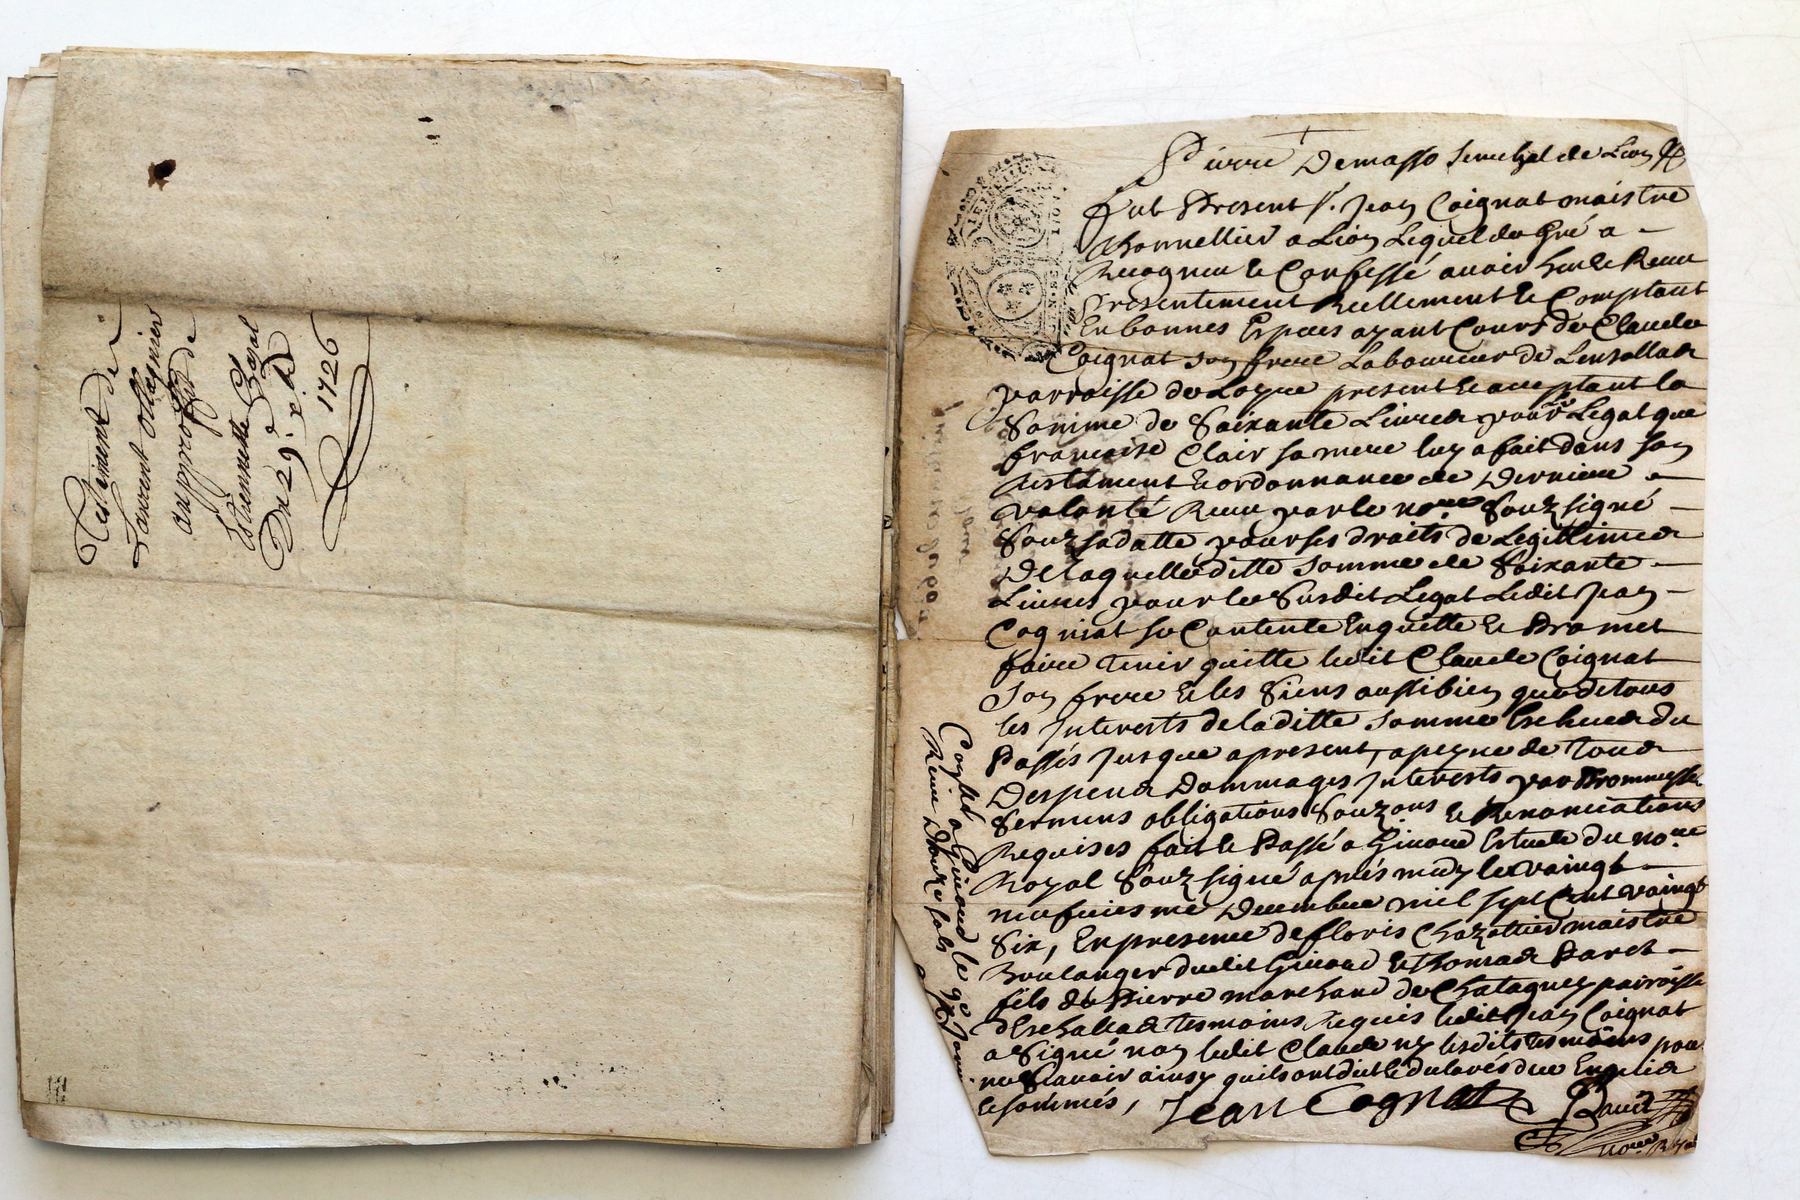 Testament de
Laurent ollagnier
au proffit de
Estiennette Gayal
Du 29.e x.b
1726
Pierre Demasso Senechal de Lion
fut Present s.r Jean Coignat maistre
Thonnellier a Lion Lequel de Gré a
Recogneu et Confessé avoir heu et Receu
Presentement Reellement et Comptant
En bonnes Especes ayant Cours de Claude
Coignat son frere Laboureur de
parroisse de Loyre present et acceptant la
Somme de Soixante Livres pour Legat que
françoise Clair sa mere luy a fait dans son
testament et ordonnance de Derniere
volonté Receu par le no.re Souzsigné
Souz sa datte pour ses droits de Legittime
De laquelle ditte Somme de Soixante
Livres pour le Susdit Legat Ledit Jean
Cogniat se Contente En quitte et Promet
faire tenir quitte ledit Claude Coignat
Son frere et les Siens aussi bien que de tous
les Interests de laditte Somme Escheues du
Passés Jusque a present, a peyne de Tous
Despens Dommages Interests par Prommesse
Sermens obligations Souz.ons et Renonciations
Requises fait et Passé a Givord Estude du no.re
Royal Souzsigné apres midy le vaingt
neufviesme Decembre mil sept Cent vaingt
Six, En presence de floris Chazottier maistre
Boulanger dudit Givord et Thomas Paret
fils de Pierre marchand de Chatagney parroisse
d'Eschallas tesmoins requis ledit Jean Coignat
a Signé non ledit Claude ny lesdits tesmoins pour
ne Scavoir ainsy quils ont dit et declarés de ce Enquis
et sommés, Jean Cognat
no.re Royal
Conterolé a Givord le 9e Janv.
Receu Douze sols